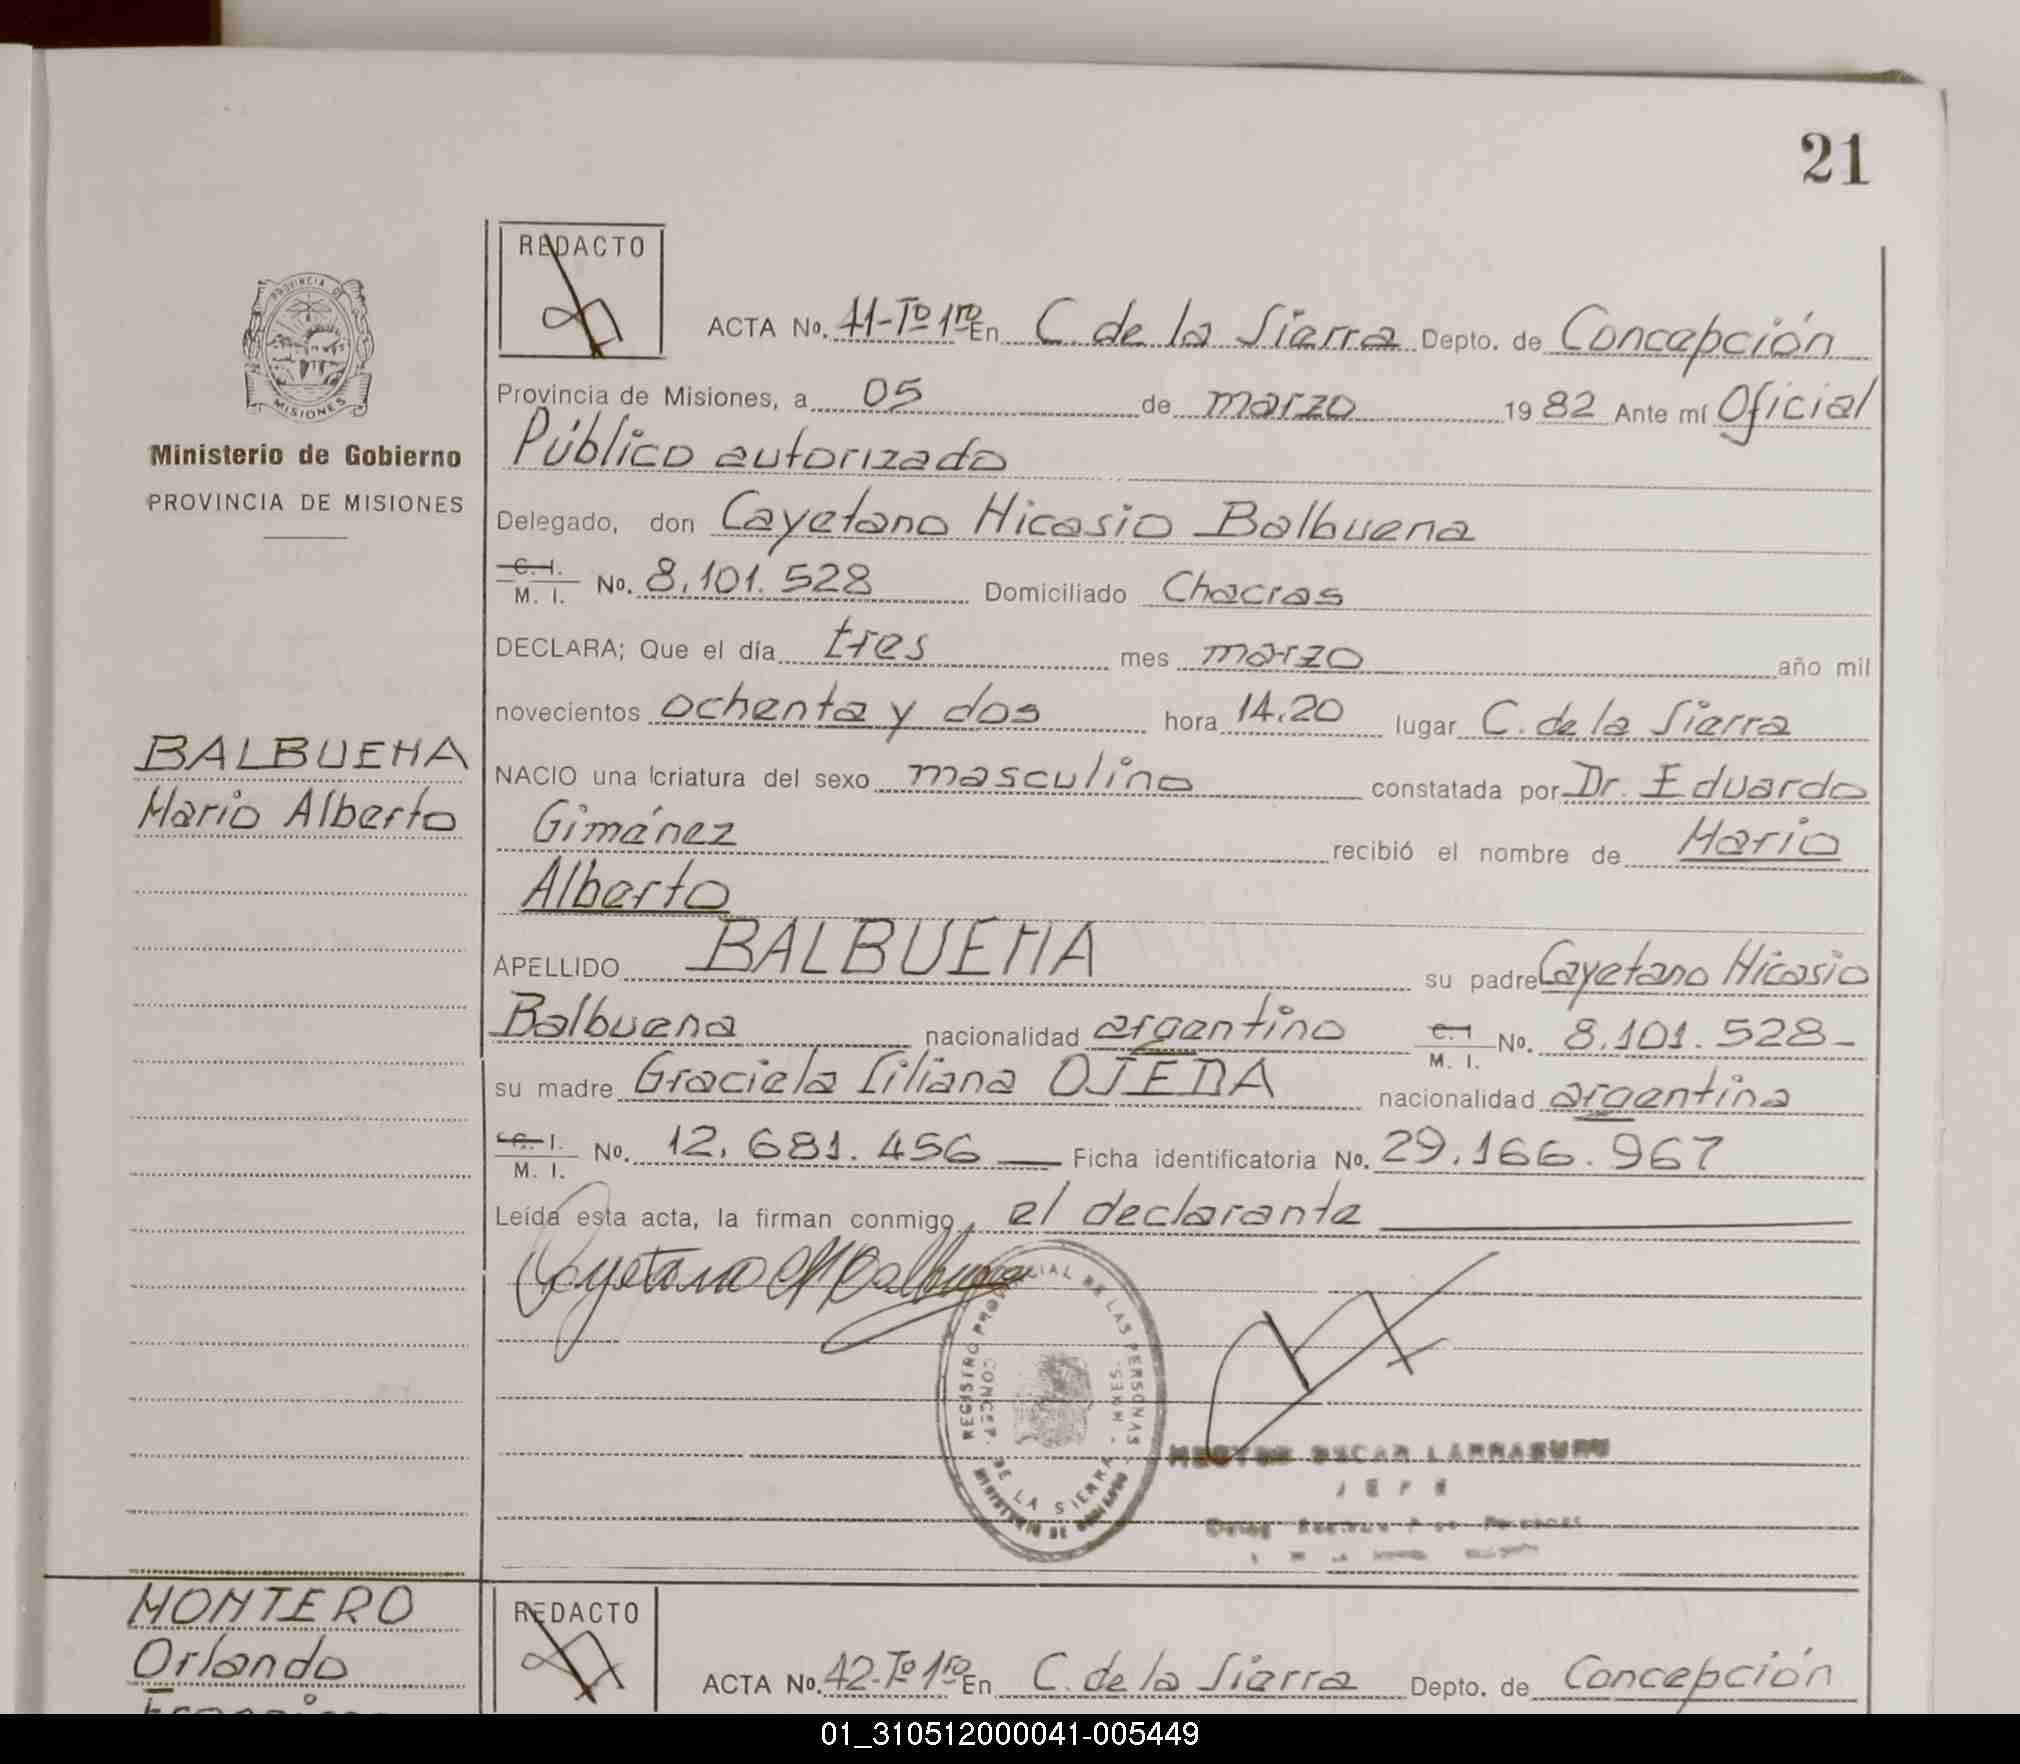 21
REDACTO
ACTA No. 41-Tº 1ro En C. de la Sierra Depto. de Concepción
PROVINCIA DE
MISIONES
Provincia de Misiones, a 05 de marzo 1982 Ante mí Oficial
Público autorizado
Ministerio de Gobierno
PROVINCIA DE MISIONES
Delegado, don Cayetano Nicasio Balbuena
C. I.
M. I. No. 8.101.528 Domiciliado Chacras
DECLARA; Que el día tres mes marzo año mil
novecientos ochenta y dos hora 14.20 lugar C. de la Sierra
BALBUENA
Mario Alberto
NACIO una criatura del sexo masculino constatada por Dr. Eduardo
Giménez recibió el nombre de Mario
Alberto
APELLIDO BALBUENA su padre Cayetano Nicasio
Balbuena nacionalidad argentino C. I
M. I. No. 8.101.528-
su madre Graciela Liliana OJEDA nacionalidad argentina
C. I.
M. I. No. 12.681.456 — Ficha identificatoria No. 29.166.967
Leída esta acta, la firman conmigo, el declarante
Cayetano N Balbuena
REGISTRO PROVINCIAL DE LAS PERSONAS
CONCEP. DE LA SIERRA - MNES.
MINISTERIO DE GOBIERNO
HECTOR OSCAR LARRABURU
JEFE
MONTERO
Orlando
REDACTO
ACTA No. 42-Tº 1ro En C. de la Sierra Depto. de Concepción
01_310512000041-005449